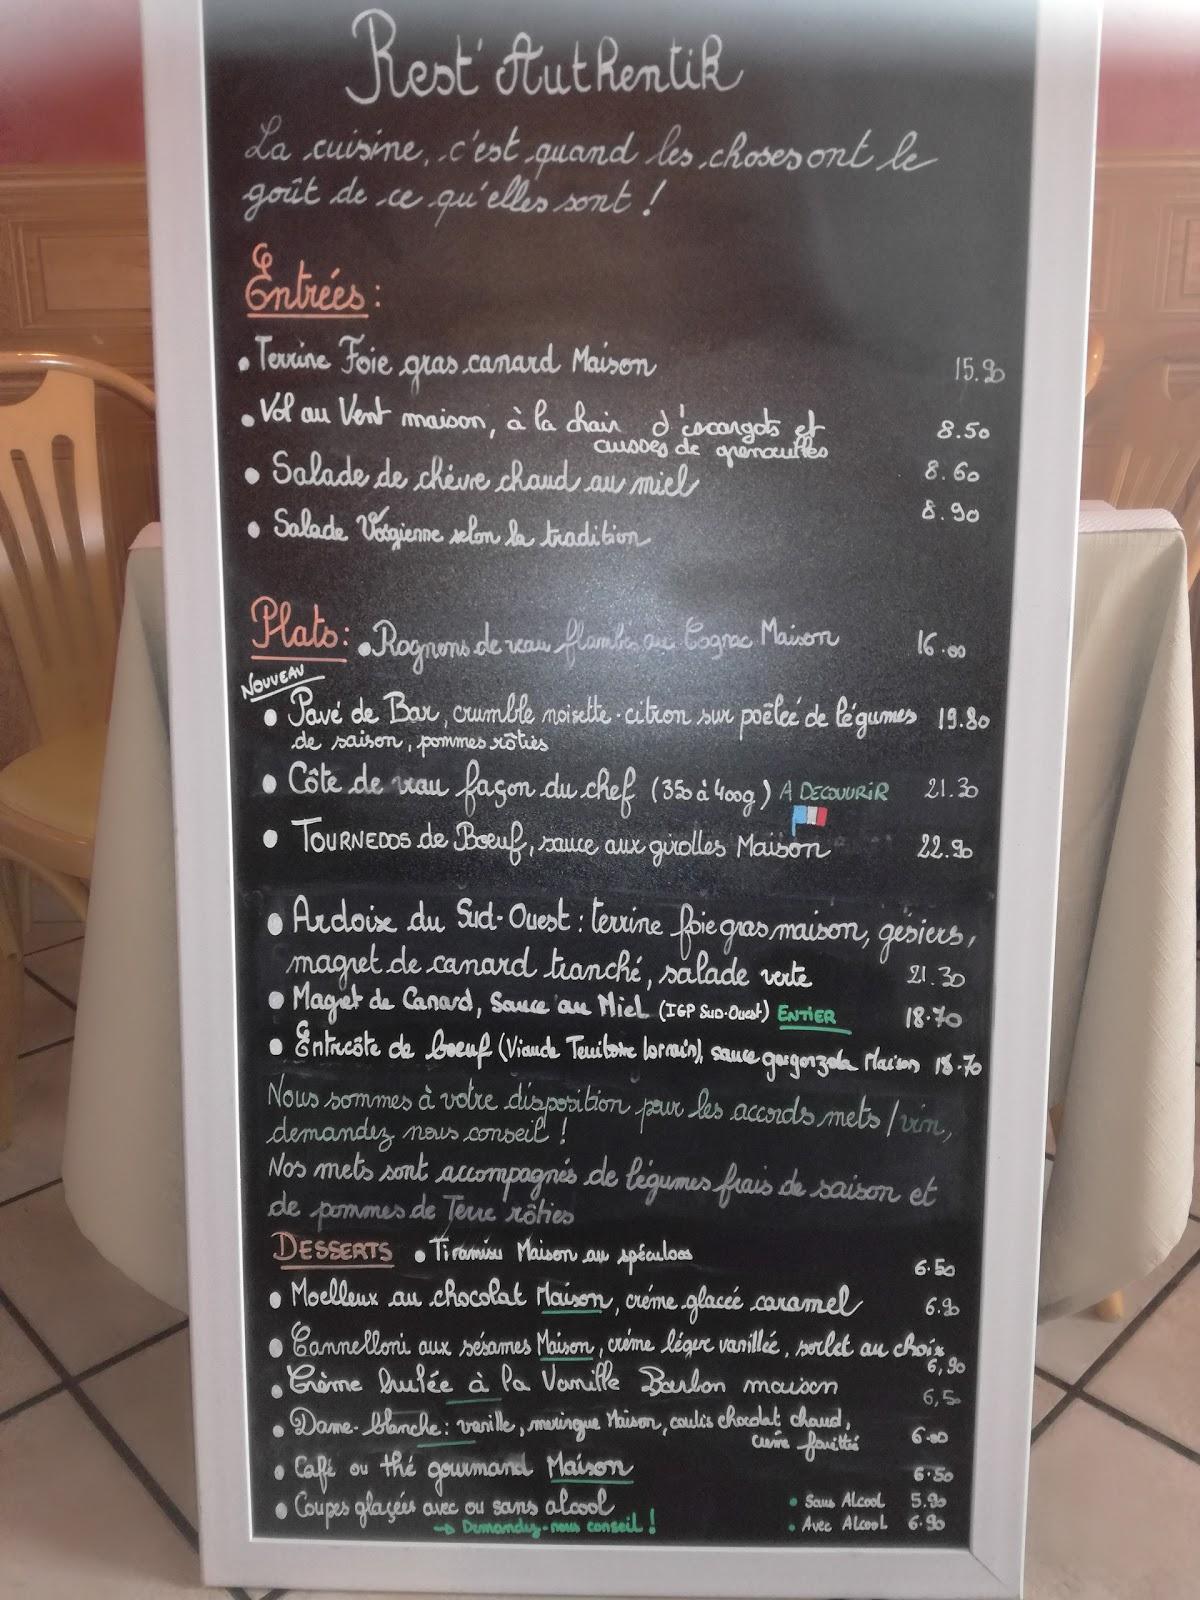 Rest'Authentik
La cuisine, c'est quand les choses ont le
goût de ce qu'elles sont !
Entrées :
• Terrine Foie gras canard Maison 15.90
• Vol au Vent maison, à la chair d'escargots et 8.50
cuisses de grenouilles
• Salade de chèvre chaud au miel 8.60
• Salade Vosgienne selon la tradition 8.90
Plats : • Rognons de veau flambés au Cognac Maison 16.00
NOUVEAU
• Pavé de Bar, crumble noisette-citron sur poêlée de légumes 19.80
de saison, pommes rôties
• Côte de veau façon du chef (350 à 400g) A DECOUVRIR 21.30
• TOURNEDOS de Bœuf, sauce aux girolles Maison 22.90
• Ardoise du Sud-Ouest : terrine foie gras maison, gésiers,
magret de canard tranché, salade verte 21.30
• Magret de Canard, Sauce au Miel (IGP SUD-OUEST) ENTIER 18.70
• Entrecôte de bœuf (Viande Territoire lorrain), sauce gorgonzola Maison 18.70
Nous sommes à votre disposition pour les accords mets / vin,
demandez nous conseil !
Nos mets sont accompagnés de légumes frais de saison et
de pommes de Terre rôties
DESSERTS • Tiramisu Maison au spéculoos 6.50
• Moelleux au chocolat Maison, crème glacée caramel 6.90
• Cannelloni aux sésames Maison, crème léger vanillée, sorbet au choix
6,90
• Crème brulée à la Vanille Bourbon maison 6,50
• Dame-blanche : vanille, meringue Maison, coulis chocolat chaud,
crème fouettée 6.00
• Café ou thé gourmand Maison 6.50
• Coupes glacées avec ou sans alcool • Sans Alcool 5.90
→ Demandez-nous conseil ! • Avec Alcool 6.90